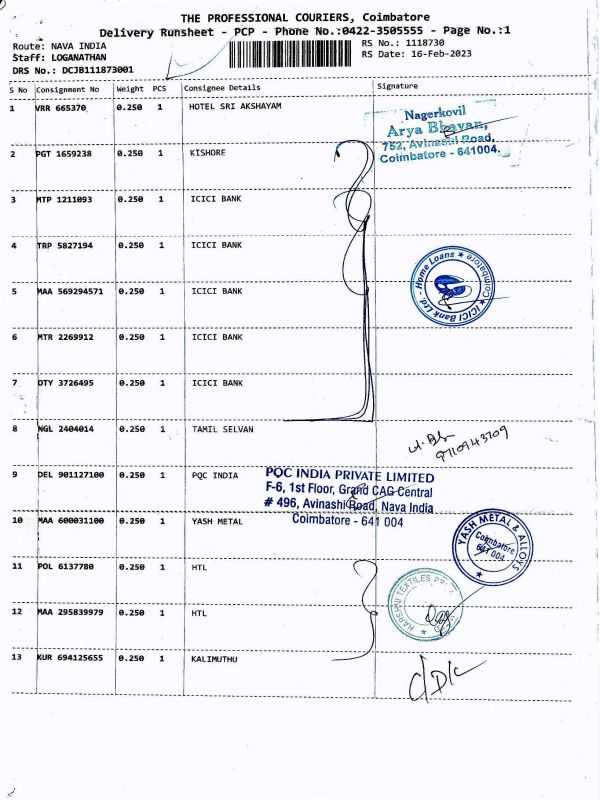 THE PROFESSIONAL COURIERS, Coimbatore
Delivery Runsheet - PCP - Phone No.:0422-3505555 - Page No.:1
Route: NAVA INDIA
RS No.: 1118730
Staff: LOGANATHAN
RS Date: 16-Feb-2023
DRS No.: DCJB111873001
S No Consignment No Weight PCS Consignee Details Signature
1 VRR 665370 0.250 1 HOTEL SRI AKSHAYAM
Nagerkovil
Arya Bhavan,
752, Avinashi Road,
Coimbatore - 641004.
2 PGT 1659238 0.250 1 KISHORE
3 MTP 1211093 0.250 1 ICICI BANK
4 TRP 5827194 0.250 1 ICICI BANK
ICICI Bank Ltd. - Home Loans ★ Coimbatore ★
5 MAA 569294571 0.250 1 ICICI BANK
6 MTR 2269912 0.250 1 ICICI BANK
7 OTY 3726495 0.250 1 ICICI BANK
8 NGL 2404014 0.250 1 TAMIL SELVAN
9710943709
9 DEL 901127100 0.250 1 PQC INDIA
PQC INDIA PRIVATE LIMITED
F-6, 1st Floor, Grand CAG Central
# 496, Avinashi Road, Nava India
Coimbatore - 641 004
10 MAA 600031100 0.250 1 YASH METAL
YASH METAL & ALLOYS ★
Coimbatore
641 004
11 POL 6137780 0.250 1 HTL
HARSHNI TEXTILES
12 MAA 295839979 0.250 1 HTL
13 KUR 694125655 0.250 1 KALIMUTHU